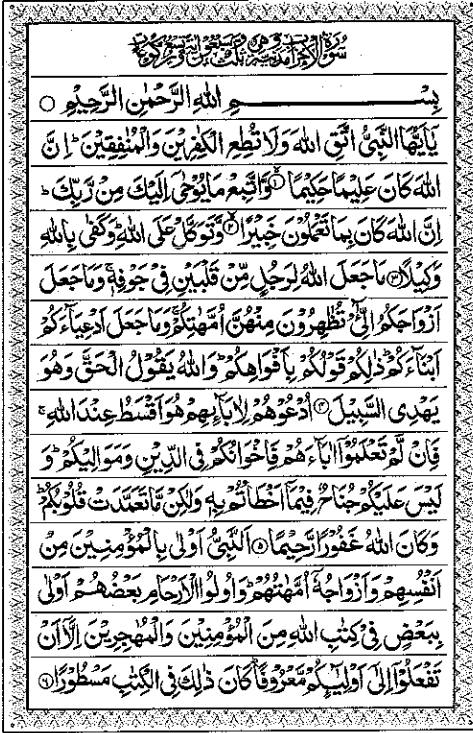 سُوْرَةُ الْاَحْزَابِ مَدَنِيَّةٌ وَّهِيَ ثَلٰثٌ وَّسَبْعُوْنَ اٰيَةً وَّتِسْعُ رُكُوْعَاتٍ
بِسْمِ اللهِ الرَّحْمٰنِ الرَّحِيْمِ ○
يٰٓاَيُّهَا النَّبِيُّ اتَّقِ اللهَ وَلَا تُطِعِ الْكٰفِرِيْنَ وَالْمُنٰفِقِيْنَ ؕ اِنَّ
اللهَ كَانَ عَلِيْمًا حَكِيْمًا ۙ﴿۱﴾ وَّاتَّبِعْ مَا يُوْحٰٓى اِلَيْكَ مِنْ رَّبِّكَ ؕ
اِنَّ اللهَ كَانَ بِمَا تَعْمَلُوْنَ خَبِيْرًا ۙ﴿۲﴾ وَّتَوَكَّلْ عَلَى اللهِ ؕ وَكَفٰى بِاللهِ
وَكِيْلًا ﴿۳﴾ مَا جَعَلَ اللهُ لِرَجُلٍ مِّنْ قَلْبَيْنِ فِيْ جَوْفِهٖ ۚ وَمَا جَعَلَ
اَزْوَاجَكُمُ الّٰٓـِٔيْ تُظٰهِرُوْنَ مِنْهُنَّ اُمَّهٰتِكُمْ ۚ وَمَا جَعَلَ اَدْعِيَآءَكُمْ
اَبْنَآءَكُمْ ؕ ذٰلِكُمْ قَوْلُكُمْ بِاَفْوَاهِكُمْ ؕ وَاللهُ يَقُوْلُ الْحَقَّ وَهُوَ
يَهْدِي السَّبِيْلَ ﴿۴﴾ اُدْعُوْهُمْ لِاٰبَآئِهِمْ هُوَ اَقْسَطُ عِنْدَ اللهِ ۚ
فَاِنْ لَّمْ تَعْلَمُوْٓا اٰبَآءَهُمْ فَاِخْوَانُكُمْ فِي الدِّيْنِ وَمَوَالِيْكُمْ ؕ وَ
لَيْسَ عَلَيْكُمْ جُنَاحٌ فِيْمَآ اَخْطَاْتُمْ بِهٖ وَلٰكِنْ مَّا تَعَمَّدَتْ قُلُوْبُكُمْ ؕ
وَكَانَ اللهُ غَفُوْرًا رَّحِيْمًا ﴿۵﴾ اَلنَّبِيُّ اَوْلٰى بِالْمُؤْمِنِيْنَ مِنْ
اَنْفُسِهِمْ وَاَزْوَاجُهٗٓ اُمَّهٰتُهُمْ ؕ وَاُولُوا الْاَرْحَامِ بَعْضُهُمْ اَوْلٰى
بِبَعْضٍ فِيْ كِتٰبِ اللهِ مِنَ الْمُؤْمِنِيْنَ وَالْمُهٰجِرِيْنَ اِلَّآ اَنْ
تَفْعَلُوْٓا اِلٰٓى اَوْلِيٰٓئِكُمْ مَّعْرُوْفًا ؕ كَانَ ذٰلِكَ فِي الْكِتٰبِ مَسْطُوْرًا ﴿۶﴾